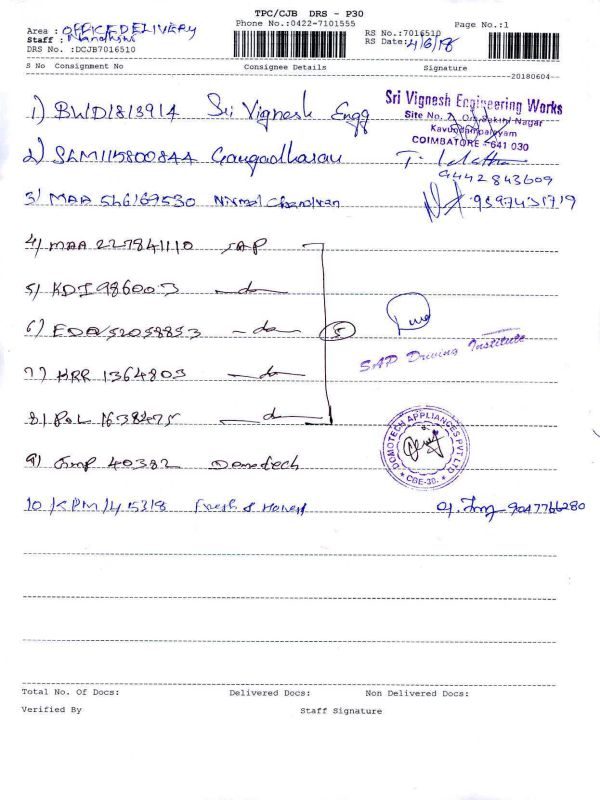 TPC/CJB DRS - P30
Area : OFFICE DELIVERY Phone No.:0422-7101555 Page No.:1
Staff : RS No.:7016510
DRS No. :DCJB7016510 RS Date: 4/6/18
S No Consignment No Consignee Details Signature
20180604
1) BWD1813914 Sri Vignesh Engg
Sri Vignesh Engineering Works
Site No. 7, Om Sakthi Nagar
Kavundampalayam
COIMBATORE - 641 030
2) SLM115800844 Gangadharan
9442843609
3) MAA 546167530 Nirmal Chandran 9397431719
4) MAA 227841110 SAP
5) KDI 986003 - do -
6) EDA52058853 - do - 5
SAP Driving Institute
7) KRR 1364803 - do -
8) POL 1638475 - do -
DOMOTECH APPLIANCES PVT LTD
* CBE-30. *
9) 40382 Domotech
10/ KPM/415318 Fresh & Honest 9047766280
Total No. Of Docs: Delivered Docs: Non Delivered Docs:
Verified By Staff Signature